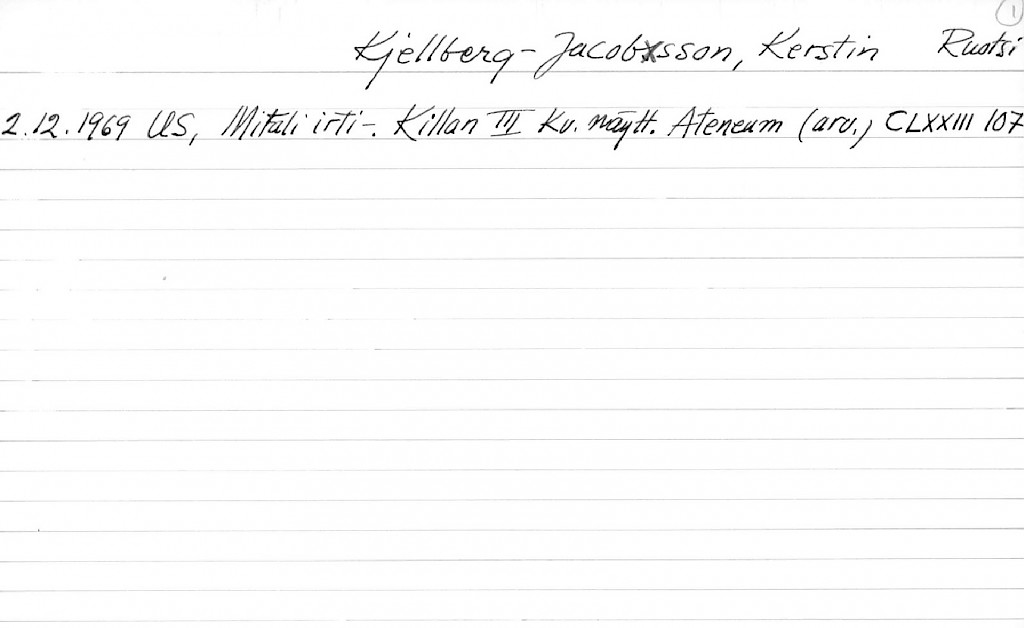 1
Kjellberg-Jacobsson, Kerstin Ruotsi
2.12.1969 US, Mitali irti-. Killan III Kv. näytt. Ateneum (arv.) CLXXIII 107